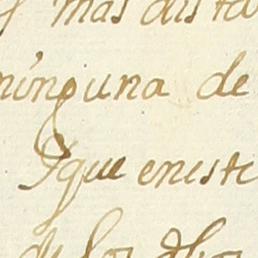 y mas dista
ninguna de
Yque eneste
de los